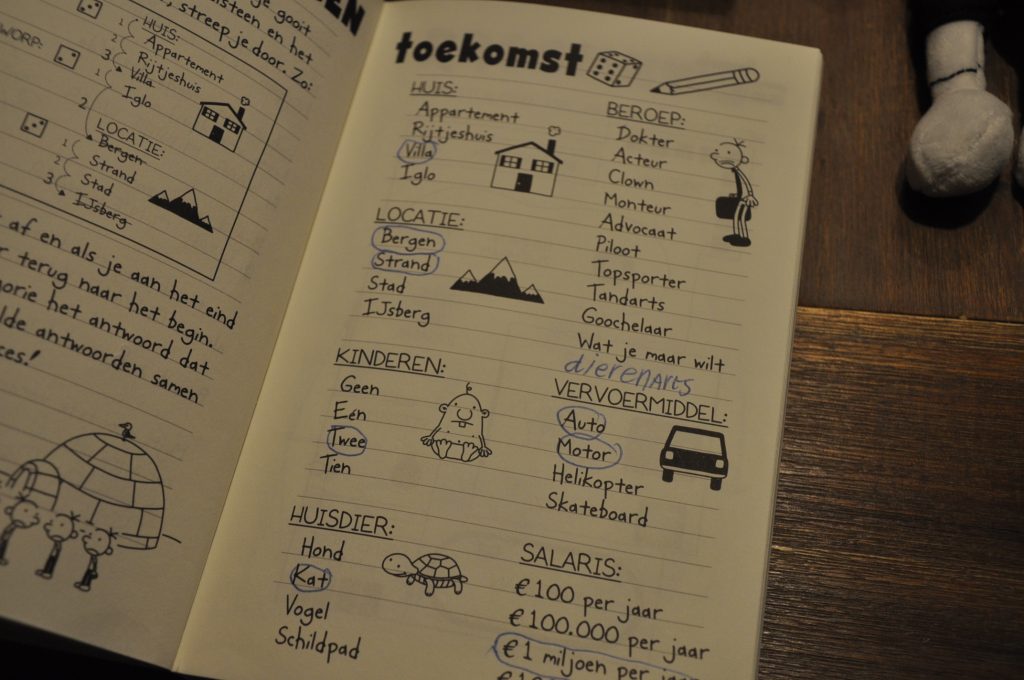 EN
je gooit
lsteen en het
, streep je door. Zo:
WORP:
1
2
3
HUIS:
Appartement
Rijtjeshuis
Villa
Iglo
1
2
LOCATIE:
Bergen
Strand
Stad
IJsberg
1
2
3
af en als je aan het eind
terug naar het begin.
orie het antwoord dat
lde antwoorden samen
ces!
toekomst
HUIS:
Appartement
Rijtjeshuis
Villa
Iglo
LOCATIE:
Bergen
Strand
Stad
IJsberg
KINDEREN:
Geen
Eén
Twee
Tien
HUISDIER:
Hond
Kat
Vogel
Schildpad
BEROEP:
Dokter
Acteur
Clown
Monteur
Advocaat
Piloot
Topsporter
Tandarts
Goochelaar
Wat je maar wilt
dierenarts
VERVOERMIDDEL:
Auto
Motor
Helikopter
Skateboard
SALARIS:
€100 per jaar
€100.000 per jaar
€1 miljoen per jaar